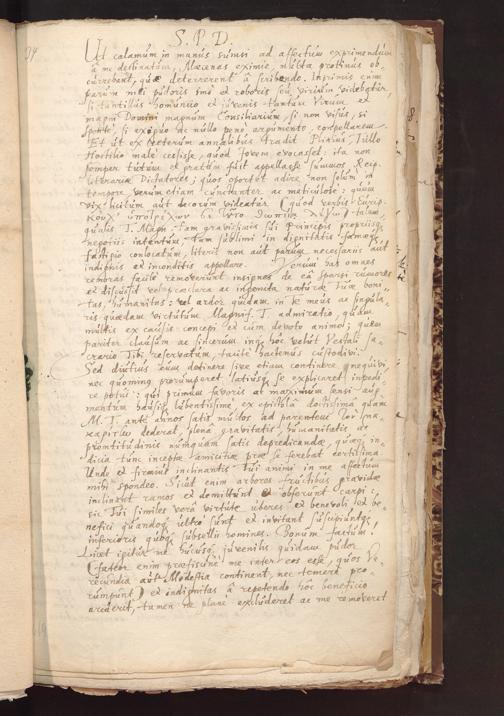 S. P. D.
Ut calamum in manus sumsi ad affectum exprimendum
à me destinatum, Mæcenas eximie, multa protinus ob-
currebant, quæ deterrerent à scribendo. Imprimis enim
parum mei pudoris imò et roboris seu virium videbatur,
si tantillus homuncio et juvenis tantum Virum, et
magni Domini magnum Consiliarium, si non visus, si
sponte, si exiguo ac nullo penè argumento, compellarem.
Et ut ex veterum annalibus tradit Plinius, Tullo
Hostilio malè cessisse, quod Jovem evocasset: ita non
semper tutum et gratum fuit appellasse summos Reip.
literariæ Dictatores, quos oportet adire non solum in
tempore verum etiam cunctanter ac meticulose: quum
vix licitum aut decorum videatur (quod verbis Eurip.
talem,
qualis T. Magn. tam gravissimis sui Principis propriisque
negotiis intentum, tum sublimi in dignitatis famæque
fastigio conlocatum, literis non aut parum necessariis aut
indignis et inconditis appellare. Verum has omnes
remoras facile removerunt insignes de eâ sparsi rumores
et discussit vel præclara ac ingenita naturæ Tuæ boni-
tas, humanitas: vel ardor quidam in te meus ac singula-
ris quædam virtutum Magnif. T. admiratio, quam
multis ex causis concepi et cum devoto animo; quem
pariter clausum ac sincerum inque hoc velut Vestali sa-
crario Tibi reservatum, tacitè hactenus custodivi.
Sed diutius eum detinere sive etiam continere nequivi,
nec quominus prorumperet latiusque se explicaret impedi-
re potui: qui primum favoris et maximum sensi aug-
mentum hausisse lubentissime, ex epistolâ doctissimâ quam
M. T. ante annos satis multos ad parentem
dederat, plenâ gravitatis, humanitatis ac
promtitudinis nunquam satis depredicandæ, quæque in-
dicia tunc inceptæ amicitiæ præ se ferebat certissima
Unde et firmius inclinantis Tui animi in me affectum
mihi spondeo. Sicut enim arbores fructibus gravidæ
inclinant ramos et demittunt et obferunt carpi;
sic Tui similes verâ virtute uberes et benevoli et be-
nefici quandoque ultro sunt et invitant suscipiuntque
inferioris quoque subsellii homines. Bonum factum!
Licet igitur me hucusque juvenilis quidam pudor
(fateor enim me inter eos esse, quos Ve-
recundia aut Modestia continent, nec temerè pro-
rumpunt) et indignitas à repetendo hoc beneficio
arceret, tamen ne planè excluderet ac me removeret